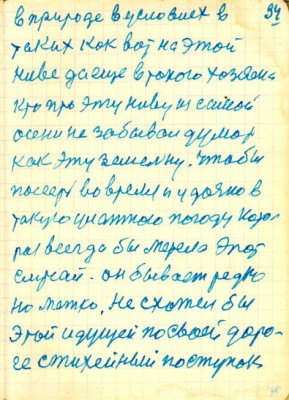 94
в природе в условиех в
таких как вот на этой
ниве да еще в токого хозяена
кто про эту ниву из самой
осени не забывал думал
как эту земельку. Чтобы
посеять во время и удачно в
такую погоду кото
рая всегда бы имела этот
случай. он бывает редко
но метко, Не схотел бы
этой идущей по своей доро-
ге стихейный поступок